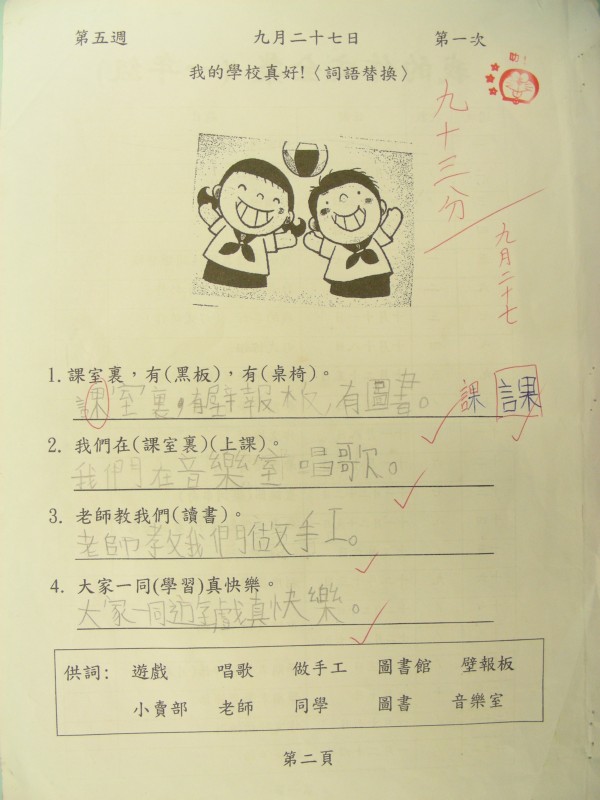 第五週 九月二十七日 第一次
我的學校真好!〈詞語替換〉
九十三分
九月二十七
1. 課室裏，有(黑板)，有(桌椅)。
課室裏，有壁報板，有圖書。 課 課
2. 我們在(課室裏)(上課)。
我們在音樂室唱歌。
3. 老師教我們(讀書)。
老師教我們做手工。
4. 大家一同(學習)真快樂。
大家一同遊戲真快樂。
供詞: 遊戲 唱歌 做手工 圖書館 壁報板
小賣部 老師 同學 圖書 音樂室
第二頁